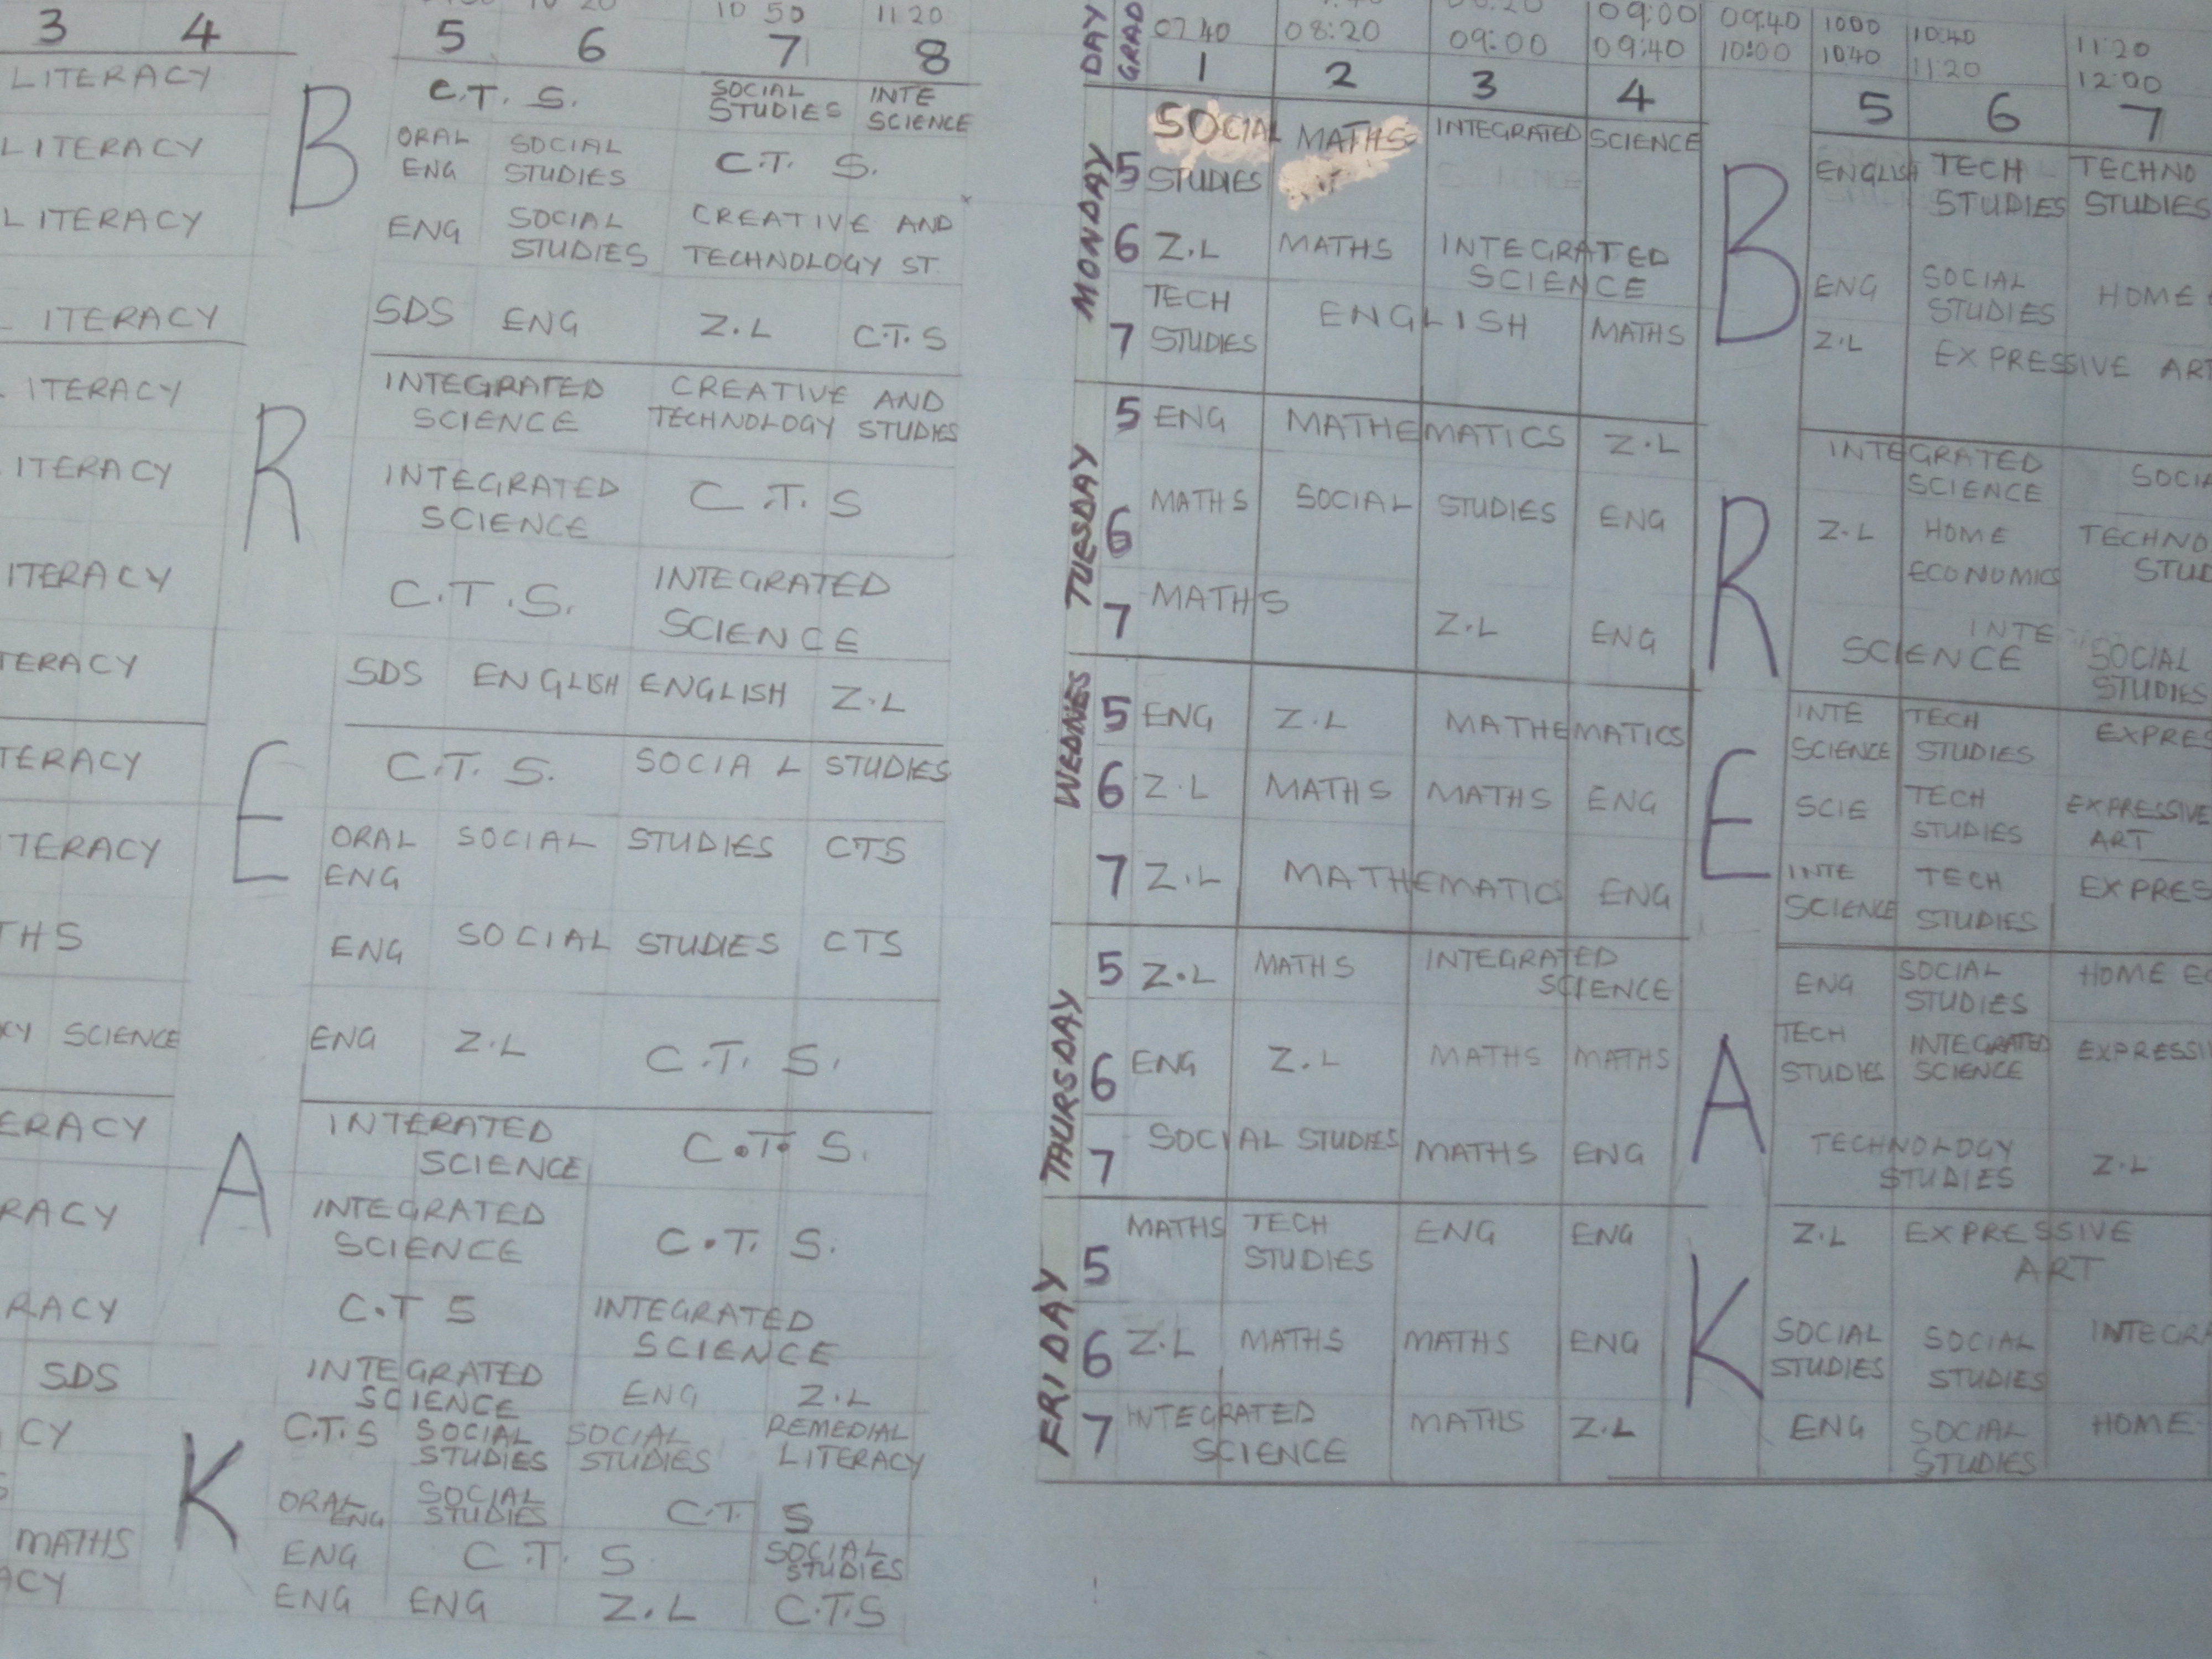 10 50 11 20
3 4 5 6 7 8
LITERACY C.T. S. SOCIAL STUDIES INTE SCIENCE
LITERACY ORAL ENG SOCIAL STUDIES C.T. S.
LITERACY ENG SOCIAL STUDIES CREATIVE AND TECHNOLOGY ST.
ITERACY SDS ENG Z.L C.T.S
ITERACY INTEGRATED SCIENCE CREATIVE AND TECHNOLOGY STUDIES
ITERACY INTEGRATED SCIENCE C.T.S
ITERACY C.T.S. INTEGRATED SCIENCE
TERACY SDS ENGLISH ENGLISH Z.L
TERACY C.T. S. SOCIAL STUDIES
TERACY ORAL ENG SOCIAL STUDIES CTS
THS ENG SOCIAL STUDIES CTS
CY SCIENCE ENG Z.L C.T. S.
ERACY INTERATED SCIENCE C.T. S.
RACY INTEGRATED SCIENCE C.T. S.
RACY C.T S INTEGRATED SCIENCE
SDS INTEGRATED SCIENCE ENG Z.L
CY C.T.S SOCIAL STUDIES SOCIAL STUDIES REMEDIAL LITERACY
S ORAL ENG SOCIAL STUDIES C.T S
MATHS ENG C.T. S SOCIAL STUDIES
ACY ENG ENG Z.L C.T.S
B
R
E
A
K
DAY GRAD 07 40 08:20 09:00 09:00 09:40 09:40 10:00 1000 1040 10:40 11:20 11:20 12:00
1 2 3 4 5 6 7
MONDAY
5 SOCIAL STUDIES MATHS INTEGRATED SCIENCE ENGLISH TECH STUDIES TECHNO STUDIES
6 Z.L MATHS INTEGRATED SCIENCE ENG SOCIAL STUDIES HOME
7 TECH STUDIES ENGLISH MATHS Z.L EXPRESSIVE ART
TUESDAY
5 ENG MATHEMATICS Z.L INTEGRATED SCIENCE SOCIA
6 MATHS SOCIAL STUDIES ENG Z.L HOME ECONOMICS TECHNO STUD
7 MATHS Z.L ENG INTE SCIENCE SOCIAL STUDIES
WEDNES
5 ENG Z.L MATHEMATICS INTE SCIENCE TECH STUDIES EXPRES
6 Z.L MATHS MATHS ENG SCIE TECH STUDIES EXPRESSIVE ART
7 Z.L MATHEMATICS ENG INTE SCIENCE TECH STUDIES EXPRES
THURSDAY
5 Z.L MATHS INTEGRATED SCIENCE ENG SOCIAL STUDIES HOME EC
6 ENG Z.L MATHS MATHS TECH STUDIES INTEGRATED SCIENCE EXPRESSI
7 SOCIAL STUDIES MATHS ENG TECHNOLOGY STUDIES Z.L
FRIDAY
5 MATHS TECH STUDIES ENG ENG Z.L EXPRESSIVE ART
6 Z.L MATHS MATHS ENG SOCIAL STUDIES SOCIAL STUDIES INTEGRA
7 INTEGRATED SCIENCE MATHS Z.L ENG SOCIAL STUDIES HOME
B
R
E
A
K